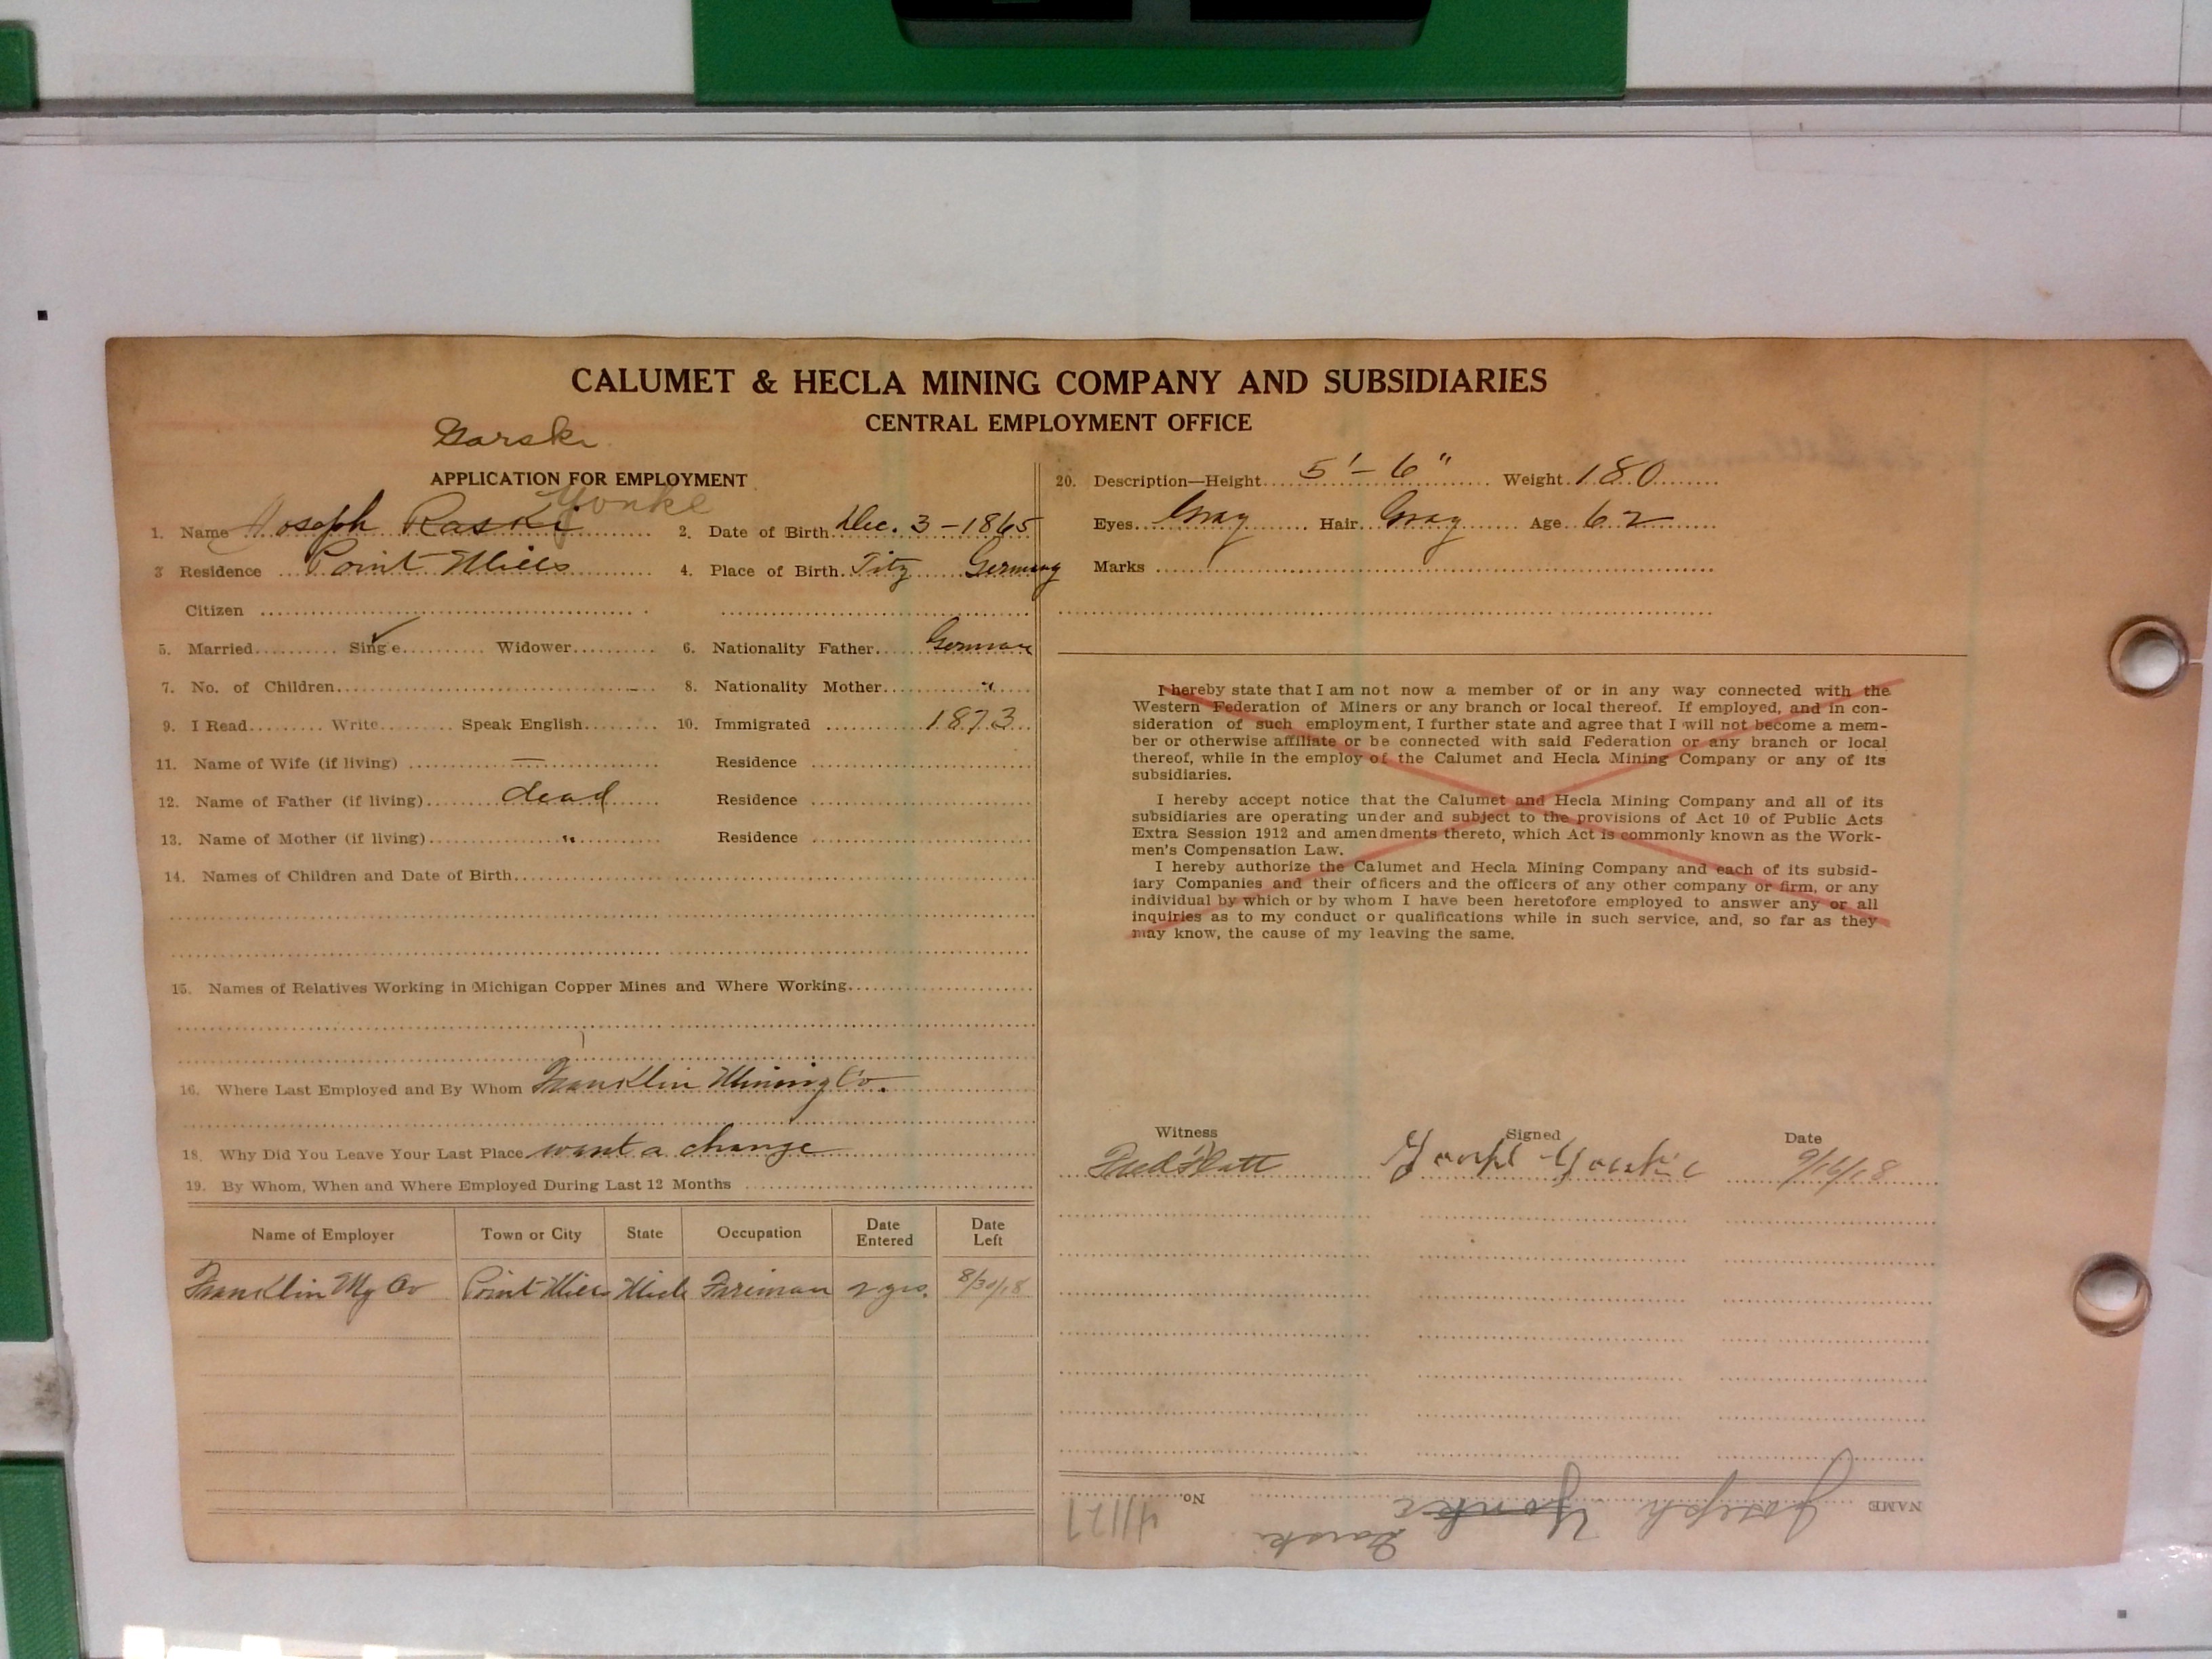 CALUMET & HECLA MINING COMPANY AND SUBSIDIARIES
CENTRAL EMPLOYMENT OFFICE
Garski
APPLICATION FOR EMPLOYMENT
Yonke
1. Name Joseph Raski 2. Date of Birth Dec. 3-1865
3 Residence Point Mills 4. Place of Birth Germany
Citizen
5. Married Single ✓ Widower 6. Nationality Father German
7. No. of Children 8. Nationality Mother "
9. I Read Write Speak English 10. Immigrated 1873
11. Name of Wife (if living) — Residence
12. Name of Father (if living) dead Residence
13. Name of Mother (if living) " Residence
14. Names of Children and Date of Birth
15. Names of Relatives Working in Michigan Copper Mines and Where Working
16. Where Last Employed and By Whom Franklin Mining Co.
18. Why Did You Leave Your Last Place want a change
19. By Whom, When and Where Employed During Last 12 Months
Name of Employer Town or City State Occupation Date Entered Date Left
Franklin Mg Co Point Mills Mich Fireman 2 yrs. 8/30/18
20. Description—Height 5'-6" Weight 180
Eyes Gray Hair Gray Age 62
Marks
I hereby state that I am not now a member of or in any way connected with the
Western Federation of Miners or any branch or local thereof. If employed, and in con-
sideration of such employment, I further state and agree that I will not become a mem-
ber or otherwise affiliate or be connected with said Federation or any branch or local
thereof, while in the employ of the Calumet and Hecla Mining Company or any of its
subsidiaries.
I hereby accept notice that the Calumet and Hecla Mining Company and all of its
subsidiaries are operating under and subject to the provisions of Act 10 of Public Acts
Extra Session 1912 and amendments thereto, which Act is commonly known as the Work-
men's Compensation Law.
I hereby authorize the Calumet and Hecla Mining Company and each of its subsid-
iary Companies and their officers and the officers of any other company or firm, or any
individual by which or by whom I have been heretofore employed to answer any or all
inquiries as to my conduct or qualifications while in such service, and, so far as they
may know, the cause of my leaving the same.
Witness Signed Date
Fred Platt 9/16/18
NAME Joseph Yonke Garski No. 41127